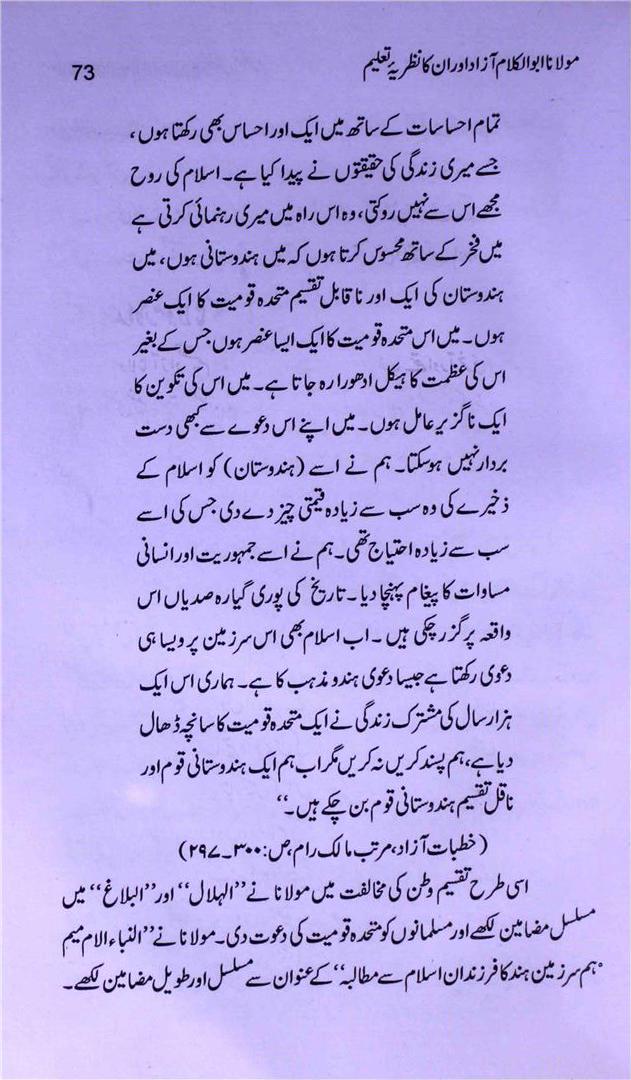 مولانا ابوالکلام آزاد اور ان کا نظریۂ تعلیم
73
تمام احساسات کے ساتھ میں ایک اور احساس بھی رکھتا ہوں،
جسے میری زندگی کی حقیقتوں نے پیدا کیا ہے۔ اسلام کی روح
مجھے اس سے نہیں روکتی، وہ اس راہ میں میری رہنمائی کرتی ہے
میں فخر کے ساتھ محسوس کرتا ہوں کہ میں ہندوستانی ہوں، میں
ہندوستان کی ایک اور ناقابل تقسیم متحدہ قومیت کا ایک عنصر
ہوں۔ میں اس متحدہ قومیت کا ایک ایسا عنصر ہوں جس کے بغیر
اس کی عظمت کا ہیکل ادھورا رہ جاتا ہے۔ میں اس کی تکوین کا
ایک ناگزیر عامل ہوں۔ میں اپنے اس دعوے سے کبھی دست
بردار نہیں ہوسکتا۔ ہم نے اسے (ہندوستان) کو اسلام کے
ذخیرے کی وہ سب سے زیادہ قیمتی چیز دے دی جس کی اسے
سب سے زیادہ احتیاج تھی۔ ہم نے اسے جمہوریت اور انسانی
مساوات کا پیغام پہنچا دیا۔ تاریخ کی پوری گیارہ صدیاں اس
واقعہ پر گزر چکی ہیں۔ اب اسلام بھی اس سرزمین پر ویسا ہی
دعوی رکھتا ہے جیسا دعوی ہندو مذہب کا ہے۔ ہماری اس ایک
ہزار سال کی مشترک زندگی نے ایک متحدہ قومیت کا سانچہ ڈھال
دیا ہے، ہم پسند کریں نہ کریں مگر اب ہم ایک ہندوستانی قوم اور
ناقل تقسیم ہندوستانی قوم بن چکے ہیں۔‘‘
(خطبات آزاد، مرتب مالک رام، ص: ۳۰۰۔۲۹۷)
اسی طرح تقسیم وطن کی مخالفت میں مولانا نے ’’الہلال‘‘ اور ’’البلاغ‘‘ میں
مسلسل مضامین لکھے اور مسلمانوں کو متحدہ قومیت کی دعوت دی۔ مولانا نے ’’النباء الام میم
ہم سرزمین ہند کا فرزندان اسلام سے مطالبہ‘‘ کے عنوان سے مسلسل اور طویل مضامین لکھے۔